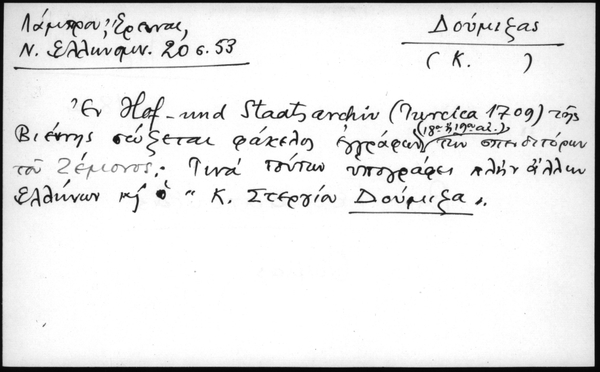 Λάμπρου, Έρευναι,
Ν. Ελληνομν. 20 σ. 53
Δούμτζας
( Κ. )
Ἐν Hof-und Staatsarchiv (Turcica 1709) τῆς
Βιέννης σώζεται φάκελος ἐγγράφων (18ου ἢ 19ου αἰ.) τῶν σπεδιτόρων
τοῦ Ζέμονος. Τινά τούτων υπογράφει πλὴν ἄλλων
Ελλήνων κ) ὁ " Κ. Στεργίου Δούμτζα ".